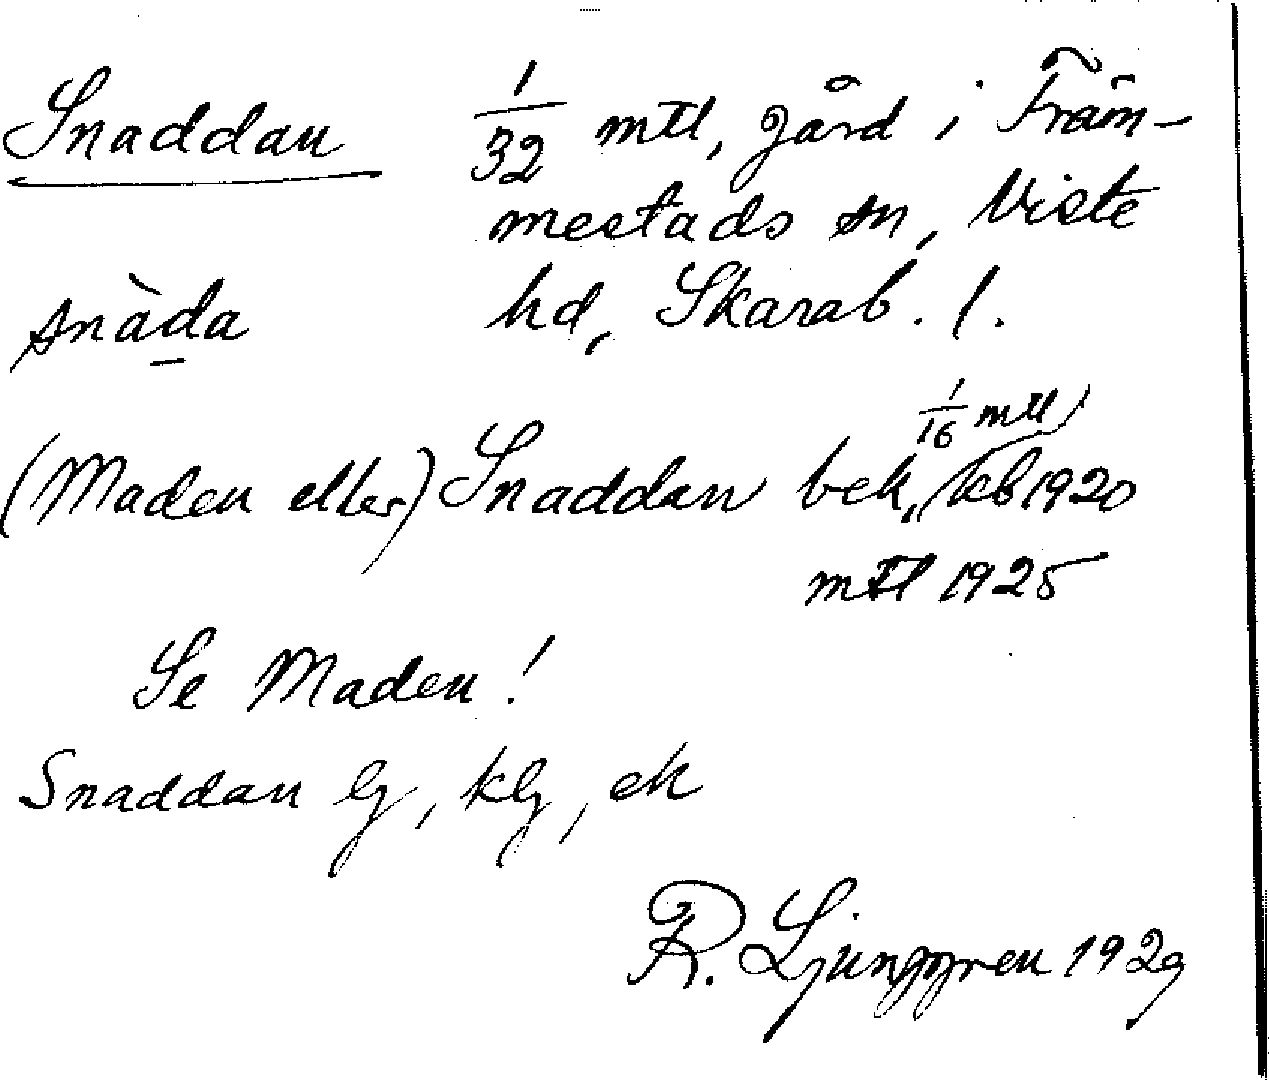 Snaddan 1/32 mtl, gård i Främ-
mestads sn, Viste
snàda hd, Skarab. l.
(Maden eller) Snaddan bek, 1/16 mtl kb 1920
mtl 1925
Se Maden!
Snaddan lg, klg, ek
R. Ljunggren 1929